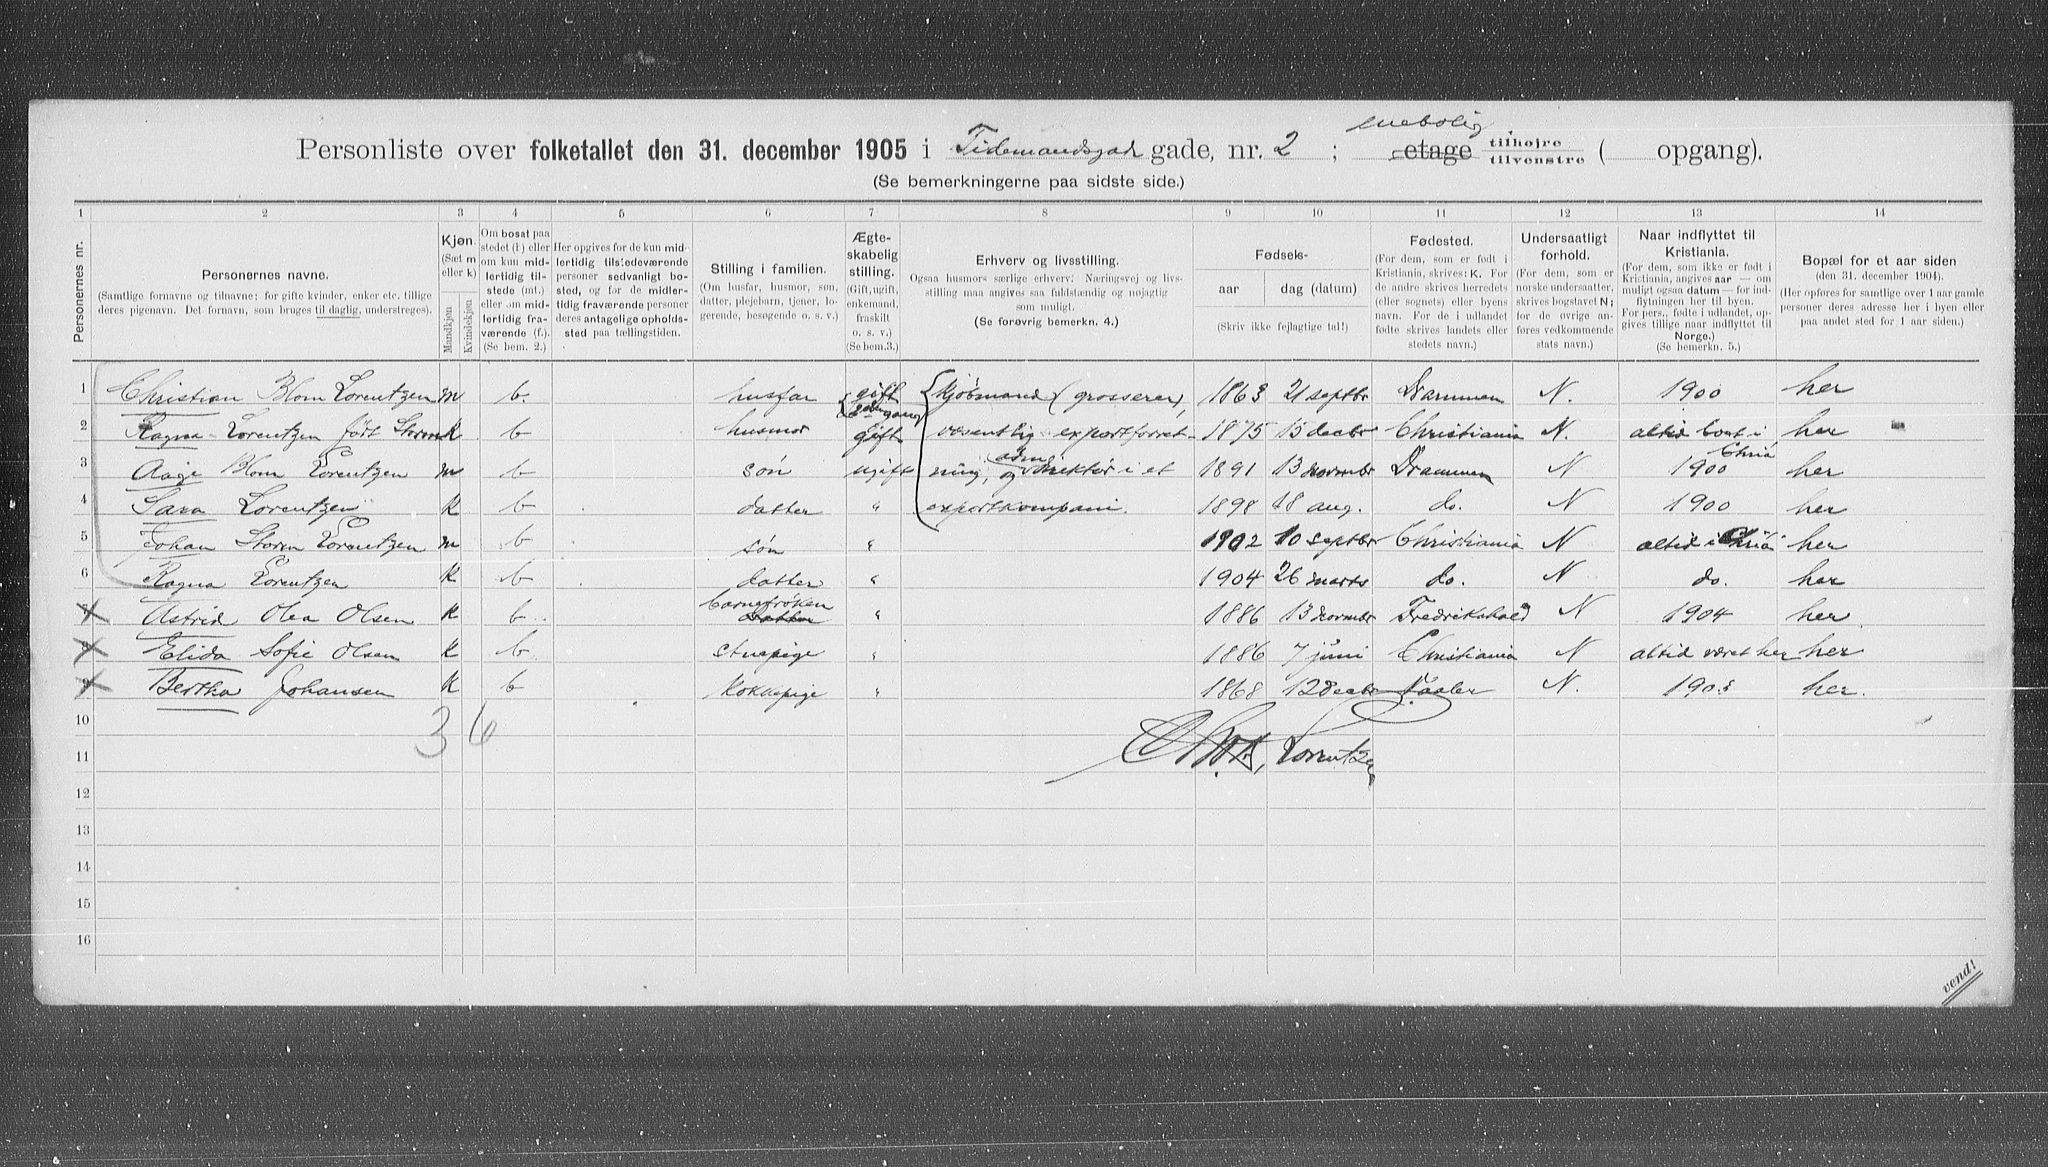 enebolig
Personliste over folketallet den 31. december 1905 i Tidemandsgad gade, nr. 2 ; etage tilhøjre tilvenstre ( opgang).
(Se bemerkningerne paa sidste side.)
1 2 3 4 5 6 7 8 9 10 11 12 13 14
Personernes nr.
Personernes navne.
(Samtlige fornavne og tilnavne; for gifte kvinder, enker etc. tillige deres pigenavn. Det fornavn, som bruges til daglig, understreges).
Kjøn. (Sæt m eller k) Mandkjøn Kvindekjøn
Om bosat paa stedet (b) eller om kun midlertidig tilstede (mt.) eller om midlertidig fraværende (f.). (Se bem. 2.)
Her opgives for de kun midlertidig tilstedeværende personer sedvanligt bosted, og for de midlertidig fraværende personer deres antagelige opholdssted paa tællingstiden.
Stilling i familien.
(Om husfar, husmor, søn, datter, plejebarn, tjener, logerende, besøgende o. s. v.)
Ægteskabelig stilling. (Gift, ugift, enkemand, fraskilt o. s. v.) (Se bem.3.)
Erhverv og livsstilling.
Ogsaa husmors særlige erhverv. Næringsvej og livsstilling maa angives saa fuldstændig og nøjagtig som muligt.
(Se forøvrig bemerkn. 4.)
Fødsels-
aar dag (datum)
(Skriv ikke fejlagtige tal!)
Fødested.
(For dem, som er født i Kristiania, skrives: K. For de andre skrives herredets (eller sognets) eller byens navn. For de i udlandet fødte skrives landets eller stedets navn.)
Undersaatligt forhold.
(For dem, som er norske undersaatter, skrives bogstavet N; for de øvrige anføres vedkommende stats navn.)
Naar indflyttet til Kristiania.
(For dem, som ikke er født i Kristiania, angives aar — om muligt ogsaa datum — for indflytningen her til byen. For pers., fødte i udlandet, opgives tillige naar indflyttet til Norge.) (Se bemerkn. 5.)
Bopæl for et aar siden
(den 31. december 1904).
(Her opføres for samtlige over 1 aar gamle personer deres adresse her i byen eller paa andet sted for 1 aar siden.)
1 Christian Blom Lorentzen m b. husfar gift 2den gang kjøbmand (grosserer), 1863 21 septbr Drammen N. 1900 her
2 Ragna Lorentzen født Storm k b husmor gift væsentlig exportforret- 1875 15 decbr Christiania N. altid boet i Chria her
3 Aage Blom Lorentzen m b søn ugift ning, og adm. direktør i et 1891 13 novembr Drammen N 1900 her
4 Sara Lorentzen k b datter " exportkompani. 1898 18 aug. do. N 1900 her
5 Johan Storm Lorentzen m b søn " 1902 10 septbr Christiania N altid i Chria her
6 Ragna Lorentzen k b datter " 1904 26 marts do. N do. her
7 Astrid Olea Olsen k b barnefrøken Datter " 1886 13 novembr Fredrikshald N 1904 her
8 Elida Sofie Olsen k b stuepige " 1886 7 juni Christiania N altid været her her
9 Bertha Johansen k b kokkepige " 1868 12 decbr Vaaler N. 1903 her.
10
3 6
11
Chr. Blom Lorentzen
12
13
14
15
16
vend!